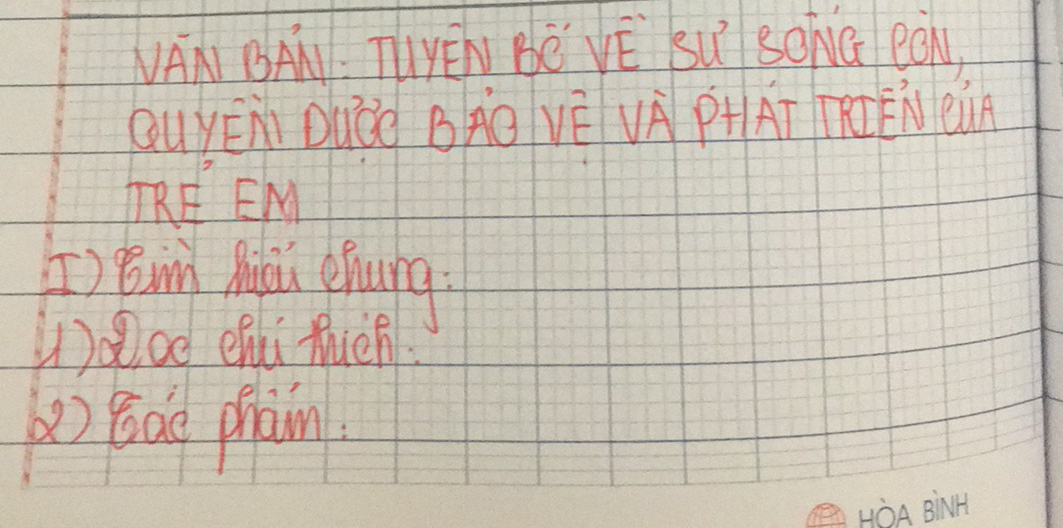 VĂN BẢN: TUYÊN BỐ VỀ SỰ SỐNG CÒN,
QUYỀN ĐƯỢC BẢO VỆ VÀ PHÁT TRIỂN CỦA
TRẺ EM
I) Tìm hiểu chung:
1) Đọc chú thích:
2) Tác phẩm:
HÒA BÌNH